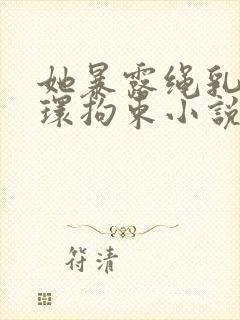 她暴露绳乳
环拘束小説
符清